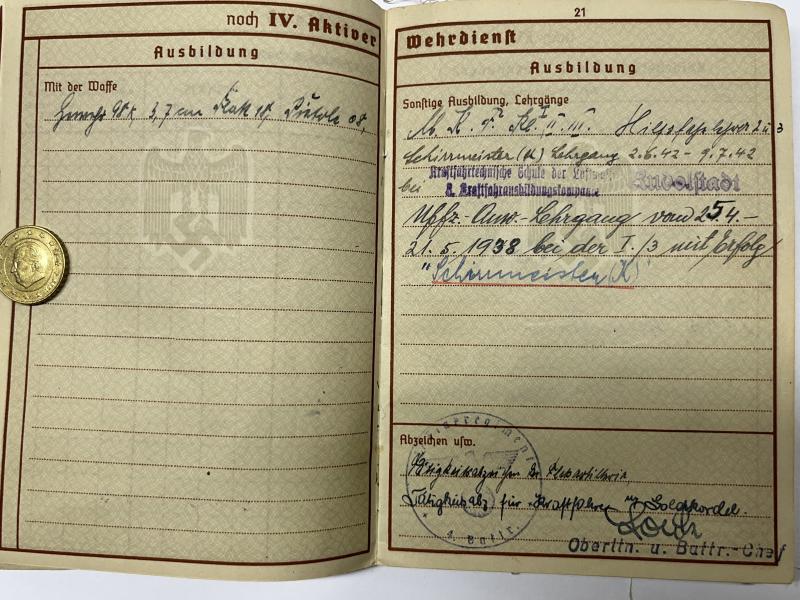 noch IV. Aktiver
Ausbildung
Mit der Waffe
98k 3,7 cm Flak 18, Pistole 08,
21
Wehrdienst
Ausbildung
Sonstige Ausbildung, Lehrgänge
Kl. I. II. III. Hilfsfahrlehrer 2 u 3
Schirrmeister (K) Lehrgang 2.6.42 - 9.7.42
Kraftfahrtechnische Schule der Luftw
bei 8. Kraftfahrausbildungskompanie Rudolstadt
Uffz.-Anw.-Lehrgang vom 25.4.-
21.5.1938 bei der I./3 mit Erfolg
"Schirrmeister (K)"
Abzeichen usw.
Tätigkeitsabz. für Kraftfahrer
Oberltn. u. Battr.-Chef